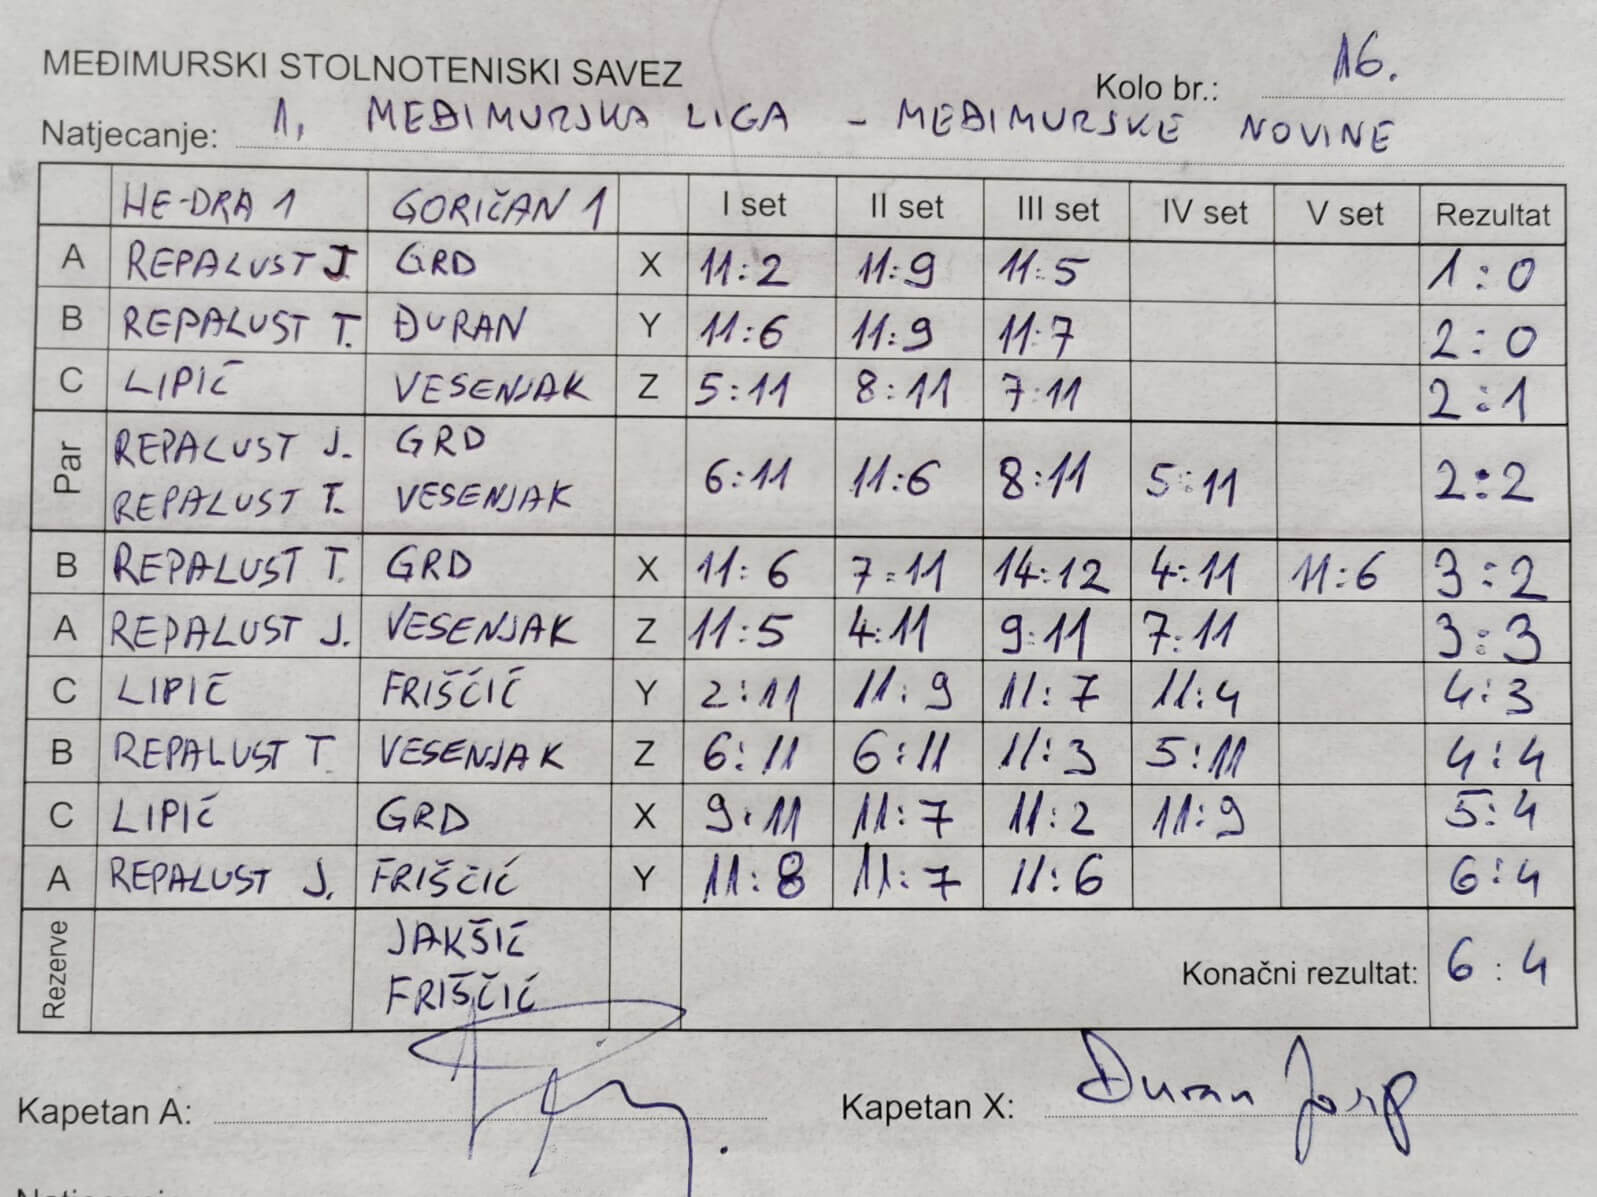 MEĐIMURSKI STOLNOTENISKI SAVEZ Kolo br.: 16.
Natjecanje: 1. MEĐIMURSKA LIGA - MEĐIMURSKE NOVINE
HE-DRA 1 GORIČAN 1 I set II set III set IV set V set Rezultat
A REPALUST J. GRD X 11:2 11:9 11:5 1:0
B REPALUST T. ĐURAN Y 11:6 11:9 11:7 2:0
C LIPIĆ VESENJAK Z 5:11 8:11 7:11 2:1
Par REPALUST J. GRD
REPALUST T. VESENJAK 6:11 11:6 8:11 5:11 2:2
B REPALUST T. GRD X 11:6 7:11 14:12 4:11 11:6 3:2
A REPALUST J. VESENJAK Z 11:5 4:11 9:11 7:11 3:3
C LIPIĆ FRIŠČIĆ Y 2:11 11:9 11:7 11:4 4:3
B REPALUST T. VESENJAK Z 6:11 6:11 11:3 5:11 4:4
C LIPIĆ GRD X 9:11 11:7 11:2 11:9 5:4
A REPALUST J. FRIŠČIĆ Y 11:8 11:7 11:6 6:4
Rezerve JAKŠIĆ
FRIŠČIĆ Konačni rezultat: 6:4
Kapetan A: Kapetan X: Đuran Josip